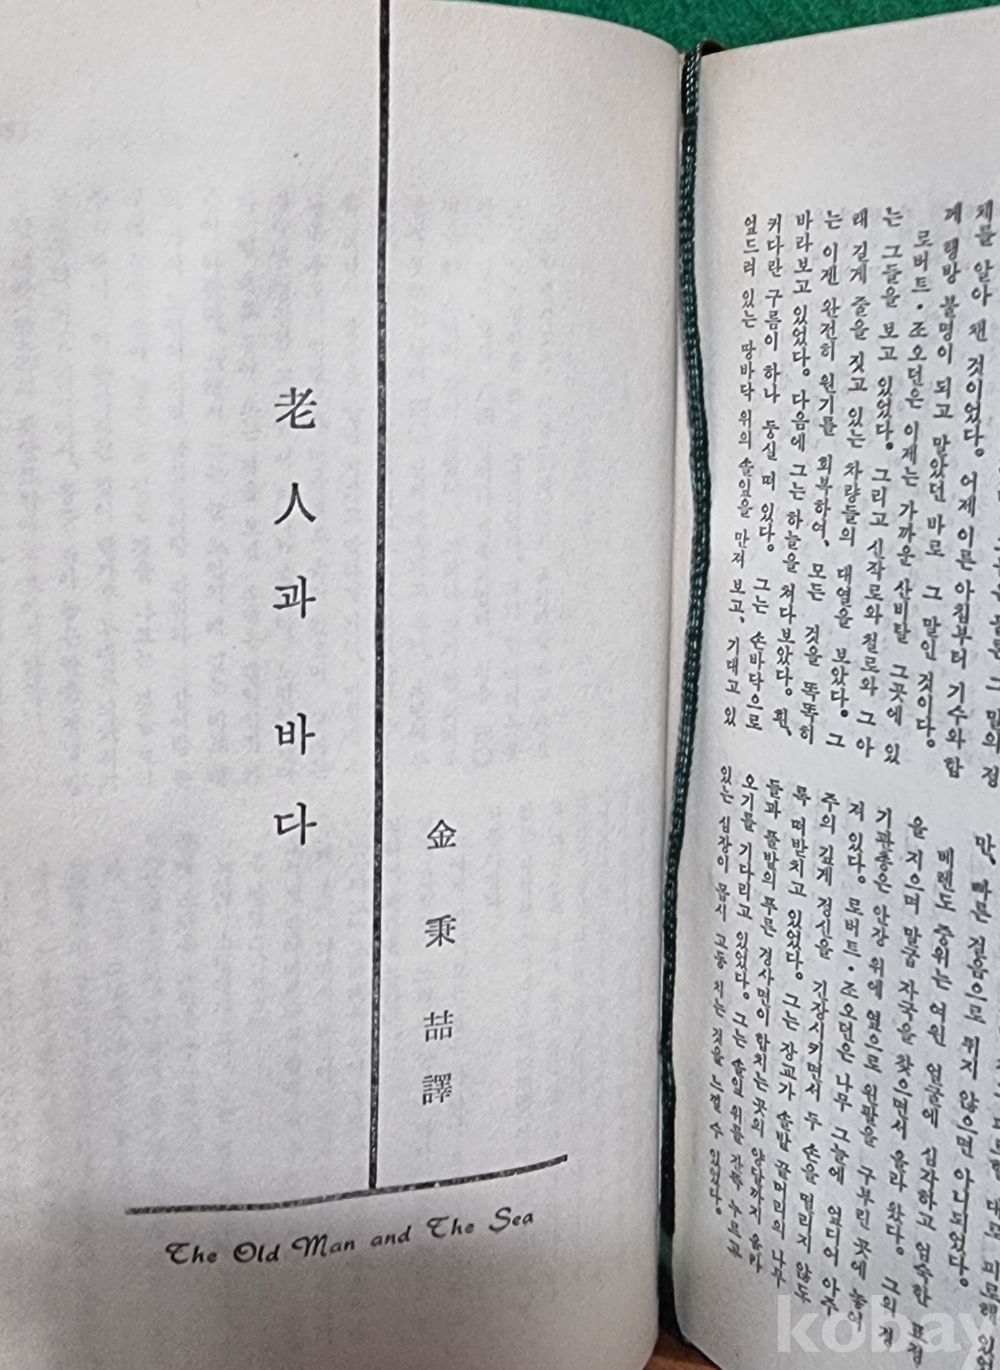 그 말의 정
체를 알아 챈 것이었다. 어제 이른 아침부터 기수와 함
께 행방 불명이 되고 말았던 바로 그 말인 것이다.
로버트·조오던은 이제는 가까운 산비탈 그곳에 있
는 그들을 보고 있었다. 그리고 신작로와 철로와 그 아
래 길게 줄을 짓고 있는 차량들의 대열을 보았다. 그
는 이젠 완전히 원기를 회복하여, 모든 것을 똑똑히
바라보고 있었다. 다음에 그는 하늘을 쳐다보았다. 흰,
커다란 구름이 하나 둥실 떠 있다. 그는 손바닥으로
엎드려 있는 땅바닥 위의 솔잎을 만져 보고, 기대고 있
대로 피로해
만, 빠른 걸음으로 뛰지 않으면 아니되었다.
베렌도 중위는 여윈 얼굴에 심각하고 엄숙한 표정
을 지으며 말굽 자국을 찾으면서 올라 왔다. 그의 경
기관총은 안장 위에 옆으로 왼팔을 구부린 곳에 놓여
져 있다. 로버트·조오던은 나무 그늘에 엎디어 아주
주의 깊게 정신을 긴장시키면서 두 손을 떨리지 않도
록 떠받치고 있었다. 그는 장교가 솔밭 끝머리의 나무
들과 풀밭의 푸른 경사면이 합치는 곳의 양달까지 올라
오기를 기다리고 있었다. 그는 솔잎 위를 잔뜩 누르고
있는 심장이 몹시 고동 치는 것을 느낄 수 있었다.
老人과 바다
金秉喆譯
The Old Man and The Sea
kobay